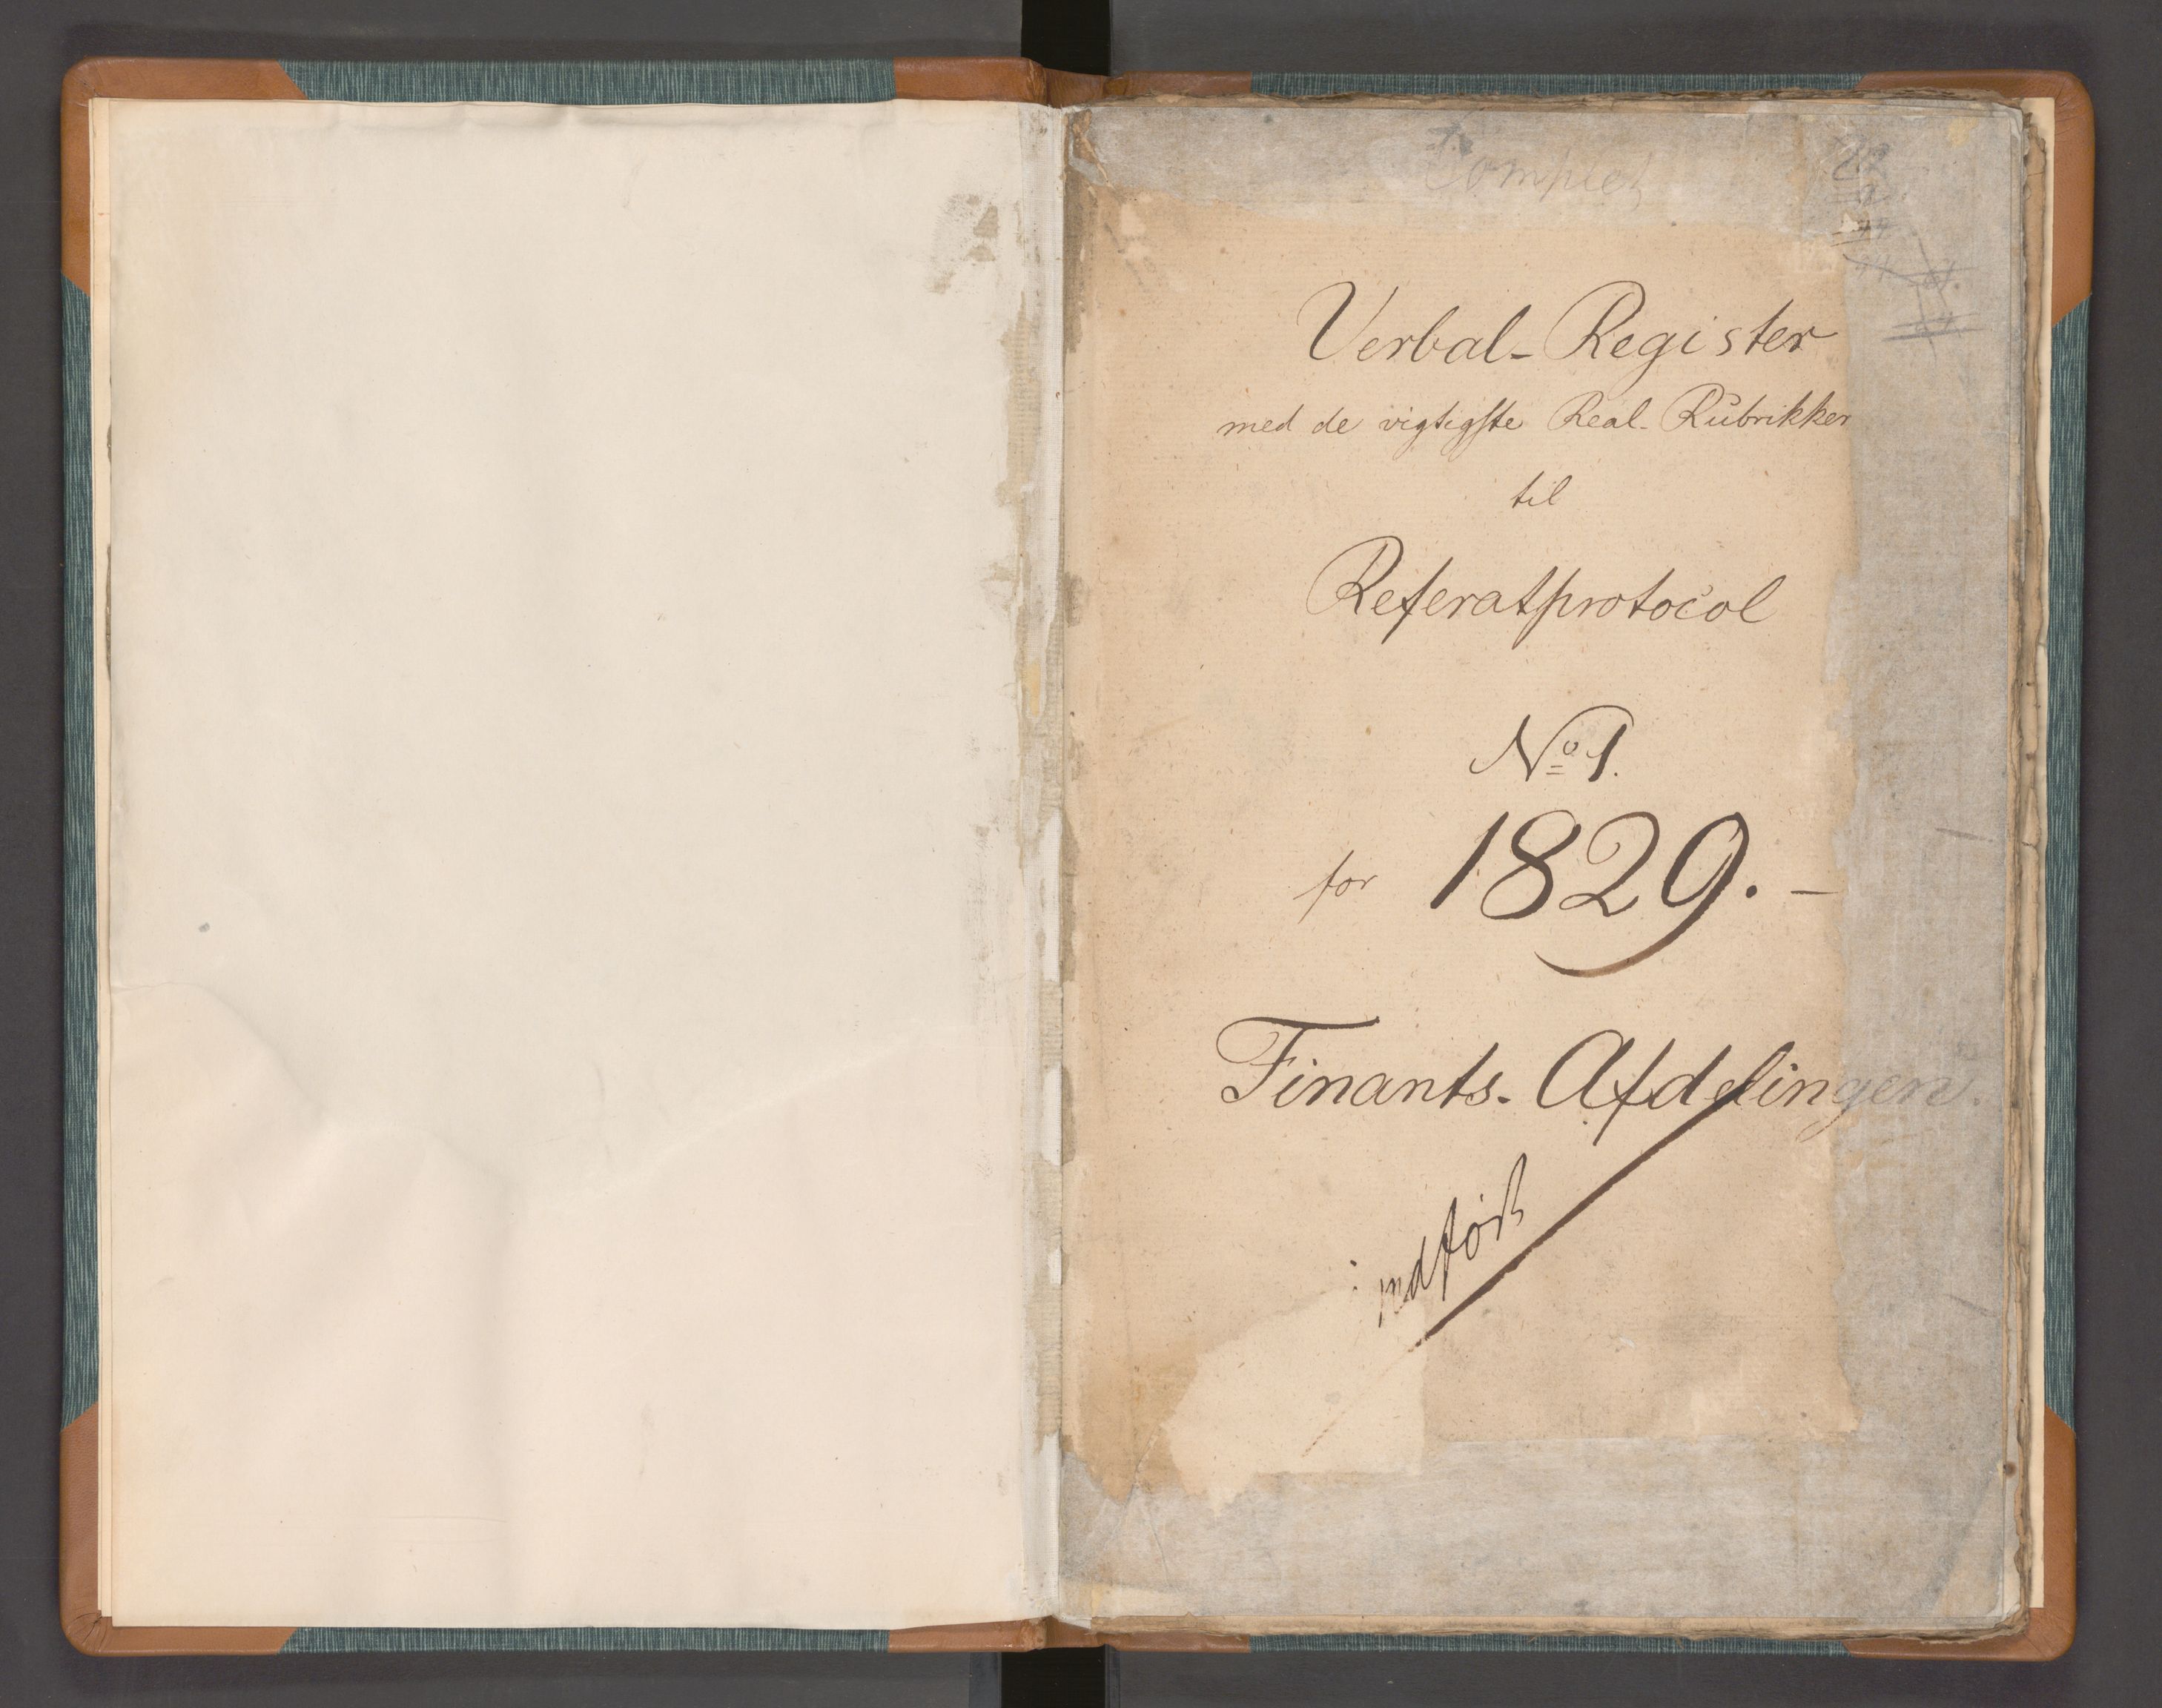 Complet
Verbal-Register
med de vigtigste Real-Rubrikker
til
Referatprotocol
No 1.
for 1829.-
Finants-Afdelingen.
indført